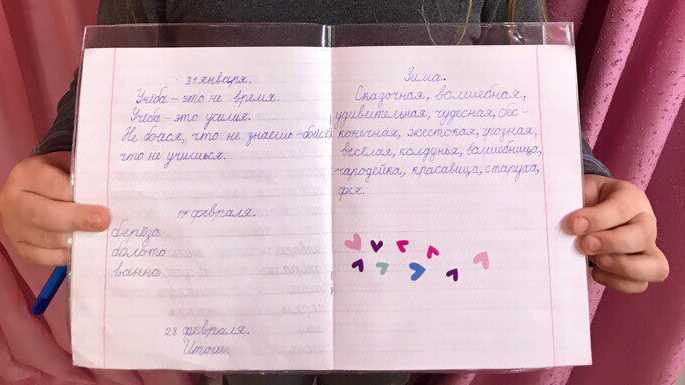 31 января.
Учёба – это не время.
Учёба – это усилия.
Не бойся, что не знаешь – бойся
что не учишься.
17 февраля.
берёза
болото
ванна
28 февраля.
Зима.
Сказочная, волшебная,
удивительная, чудесная, бес-
конечная, жестокая, грозная,
весёлая, колдунья, волшебница,
чародейка, красавица, старуха,
фея.